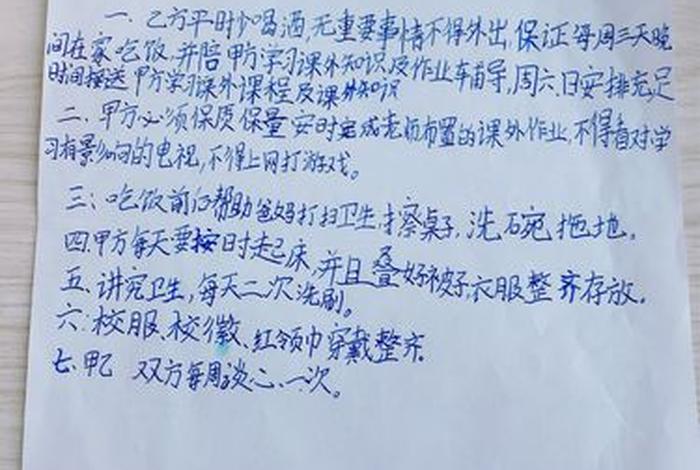 一、乙方平时少喝酒,无重要事情不得外出,保证每周三天晚
间在家吃饭,并陪甲方学习课外知识及作业车辅导,周六、日安排充足
时间接送甲方学习课外课程及课外知识
二、甲方必须保质保量安时完成老师布置的课外作业,不得看对学
习有影响的电视,不得上网打游戏。
三、吃饭前后帮助爸妈打扫卫生,擦桌子,洗碗拖地。
四.甲方每天要按时起床,并且叠好被子,衣服整齐存放.
五、讲究卫生,每天二次洗刷。
六、校服、校徽、红领巾穿戴整齐.
七、甲乙 双方每周谈心一次。